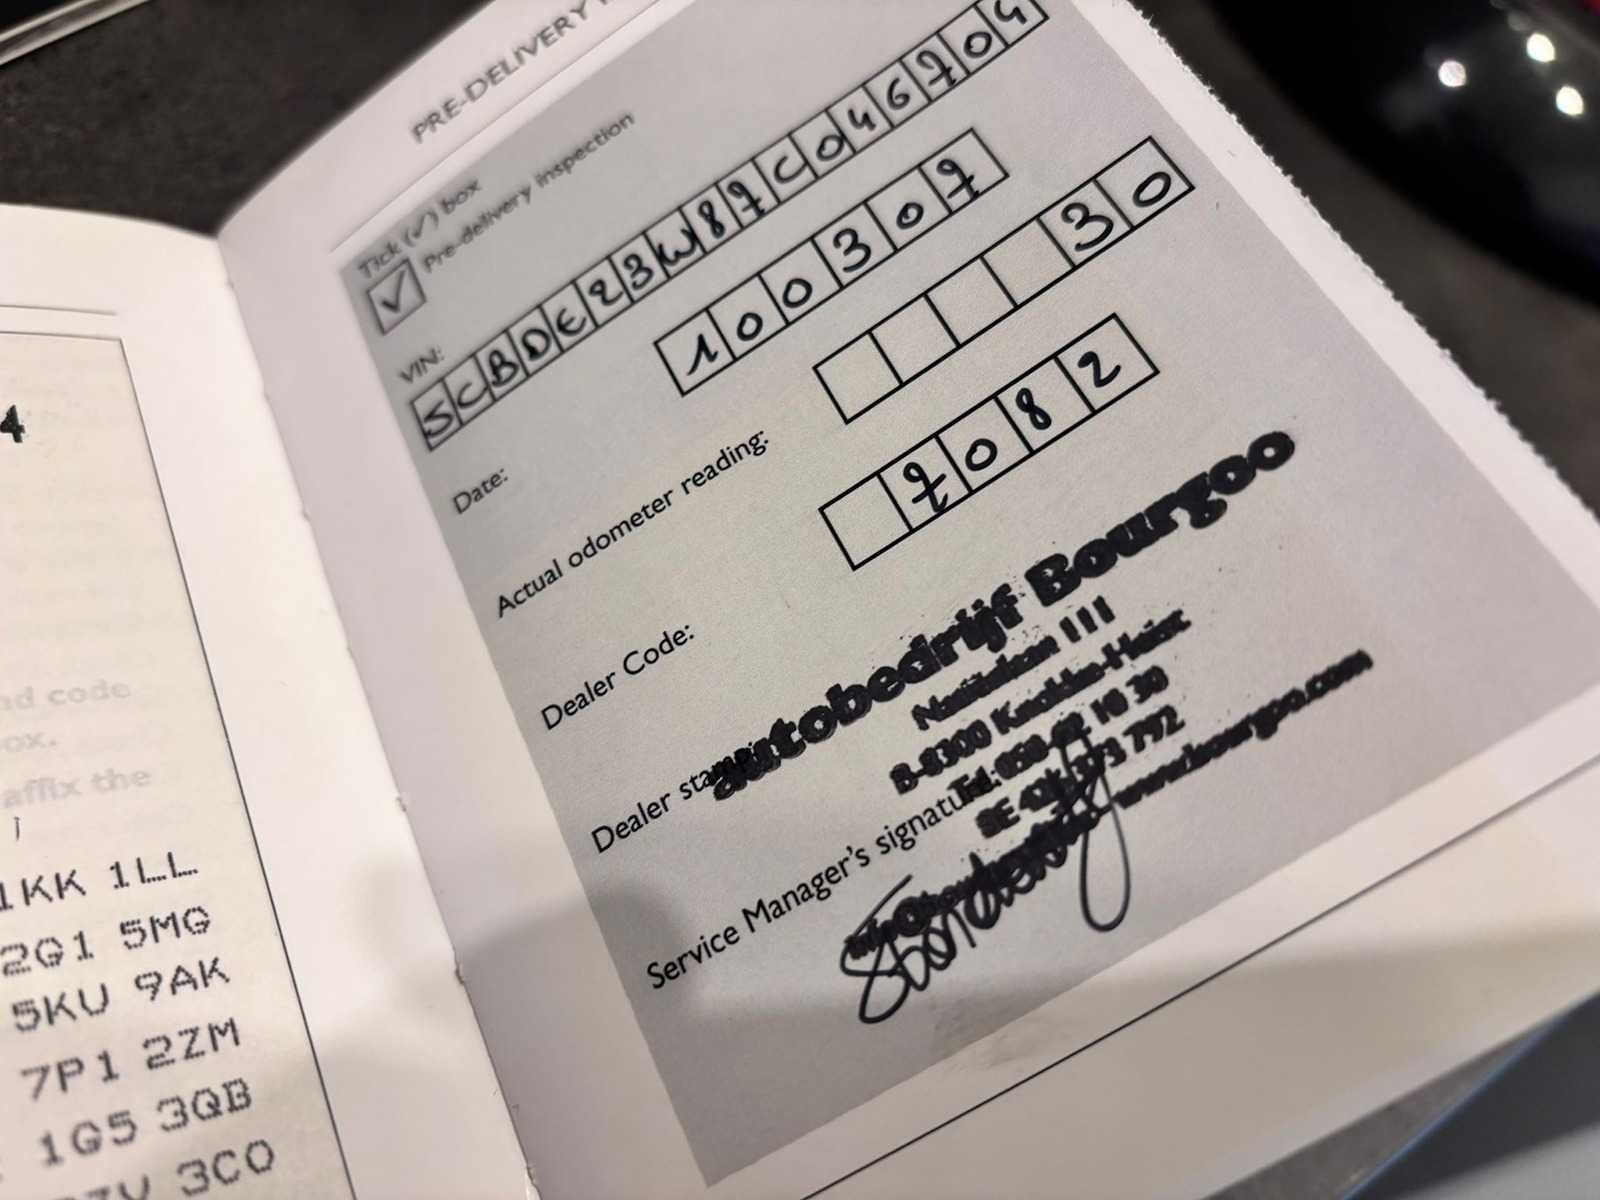 4
nd code
ox.
affix the
1KK 1LL
2G1 5MG
5KU 9AK
7P1 2ZM
1G5 3QB
3CO
PRE-DELIVERY
Tick (✓) box
✓ Pre-delivery inspection
VIN: SCBDE23W87C046704
Date: 100307
Actual odometer reading: 30
Dealer Code: 7082
Dealer stamp
autobedrijf Bourgoo
Natiënlaan 111
B-8300 Knokke-Heist
Tel. 050-62 10 30
BE 424 373 792
www.bourgoo.com
Service Manager's signature: